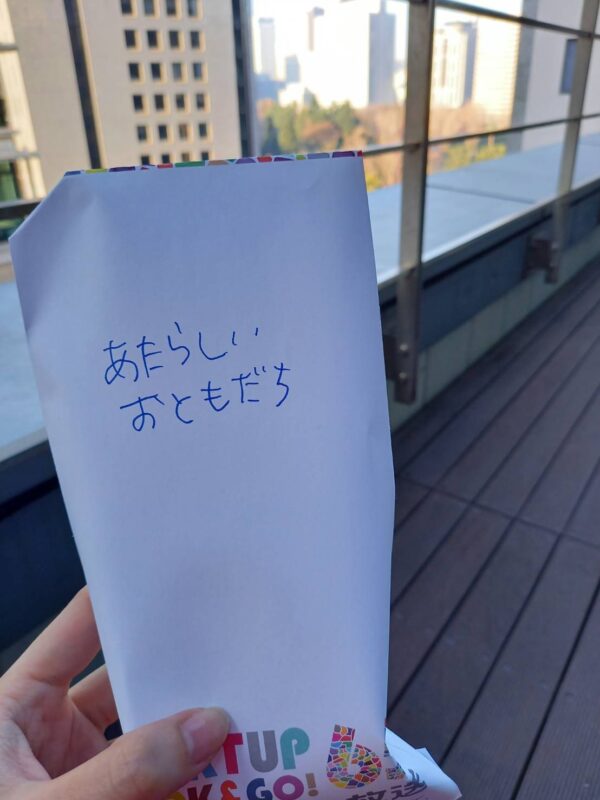 あたらしい
おともだち
TUP
K&GO!
放送